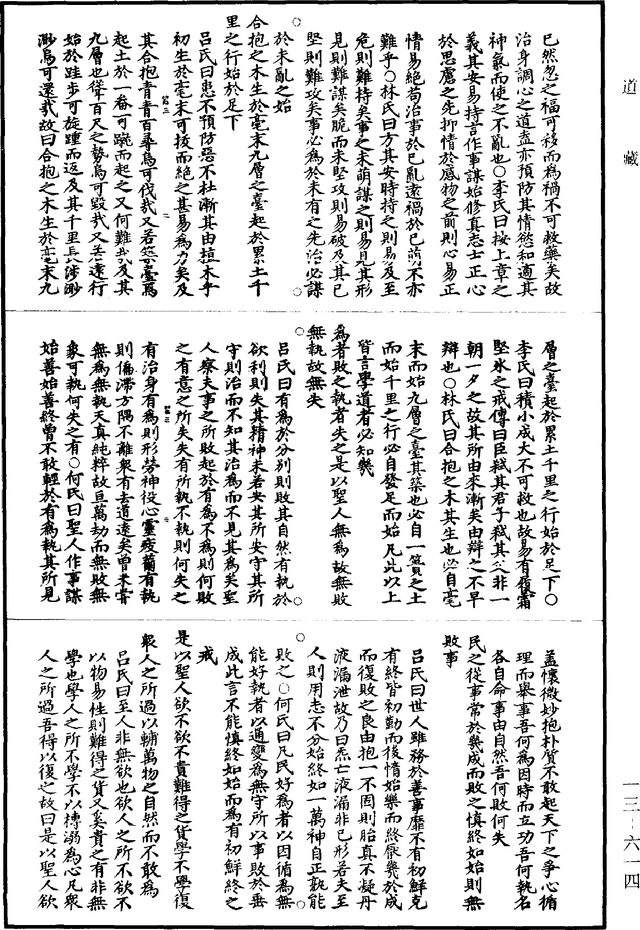 道藏
已然忽之福可移而為禍不可救藥矣故
治身調心之道盍亦預防其情慾和適其
神氣而使之不亂也○李氏曰按上章之
義其安易持言作事謀始修真志士正心
於思慮之先抑情於感物之前則心易正
情易絕苟治事於已亂遠禍於已萌不亦
難乎○林氏曰方其安時持之則易及至
危則難持矣事之未萌謀之則易見其形
見則難謀矣脆而未堅攻則易破及其已
堅則難攻矣事必為於未有之先治必謀
於未亂之始
合抱之木生於毫末九層之臺起於累土千
里之行始於足下
呂氏曰患不預防惡不杜漸其由植木乎
初生於毫末可拔而絕之甚易為力矣及
其合抱青青百尋烏可伐哉又若築臺焉
起土於一畚可蹴而起之又何難哉及其
九層也聳百尺之勢烏可毀哉又若遠行
始於跬步可旋踵而返及其千里長涉渺
渺烏可還哉故曰合抱之木生於毫末九
層之臺起於累土千里之行始於足下○
李氏曰積小成大不可救也故易有履霜
堅氷之戒傳曰臣弒其君子弒其父非一
朝一夕之故其所由來漸矣由辯之不早
辯也○林氏曰合抱之木其生也必自毫
末而始九層之臺其築也必自一簣之土
而始千里之行必自發足而始凡此以上
皆言學道者必知幾
為者敗之執者失之是以聖人無為故無敗
無執故無失
呂氏曰有為於分別則敗其自然有執於
欲利則失其精神未若安其所安守其所
守則治而不知其治為而不見其為矣聖
人察夫事之所敗起於有為不為則何敗
之有意之所失失有所執不執則何失之
有治身有為則形勞神役心靈疲薾有執
則偏滯方隅不離衆有去道遠矣曾未嘗
無為無執天真純粹故亘萬劫而無敗無
象可執何失之有○何氏曰聖人作事謀
始善始善終曾不敢輕於有為執其所見
蓋懷微妙抱朴質不敢起天下之爭心循
理而舉事吾何為因時而立功吾何執名
各自命事由自然吾何敗何失
民之從事常於幾成而敗之慎終如始則無
敗事
呂氏曰世人雖務於善事靡不有初鮮克
有終皆初勤而後惰始樂而終厭幾於成
而復敗之良由抱一不固則胎真不凝丹
液漏泄故乃曰炁亡液漏非已形若夫至
人則用志不分始終如一萬神自正孰能
敗之○何氏曰凡民好為者以因循為無
能好執者以通變為無守所以事敗於垂
成此言不能慎終如始而為有初鮮終之
戒
是以聖人欲不欲不貴難得之貨學不學復
衆人之所過以輔萬物之自然而不敢為
呂氏曰至人非無欲也欲人之所不欲不
以物易性則難得之貨又奚貴之有非無
學也學人之所不學不以博溺為心凡衆
人之所過吾得以復之故曰是以聖人欲
一三—六一四